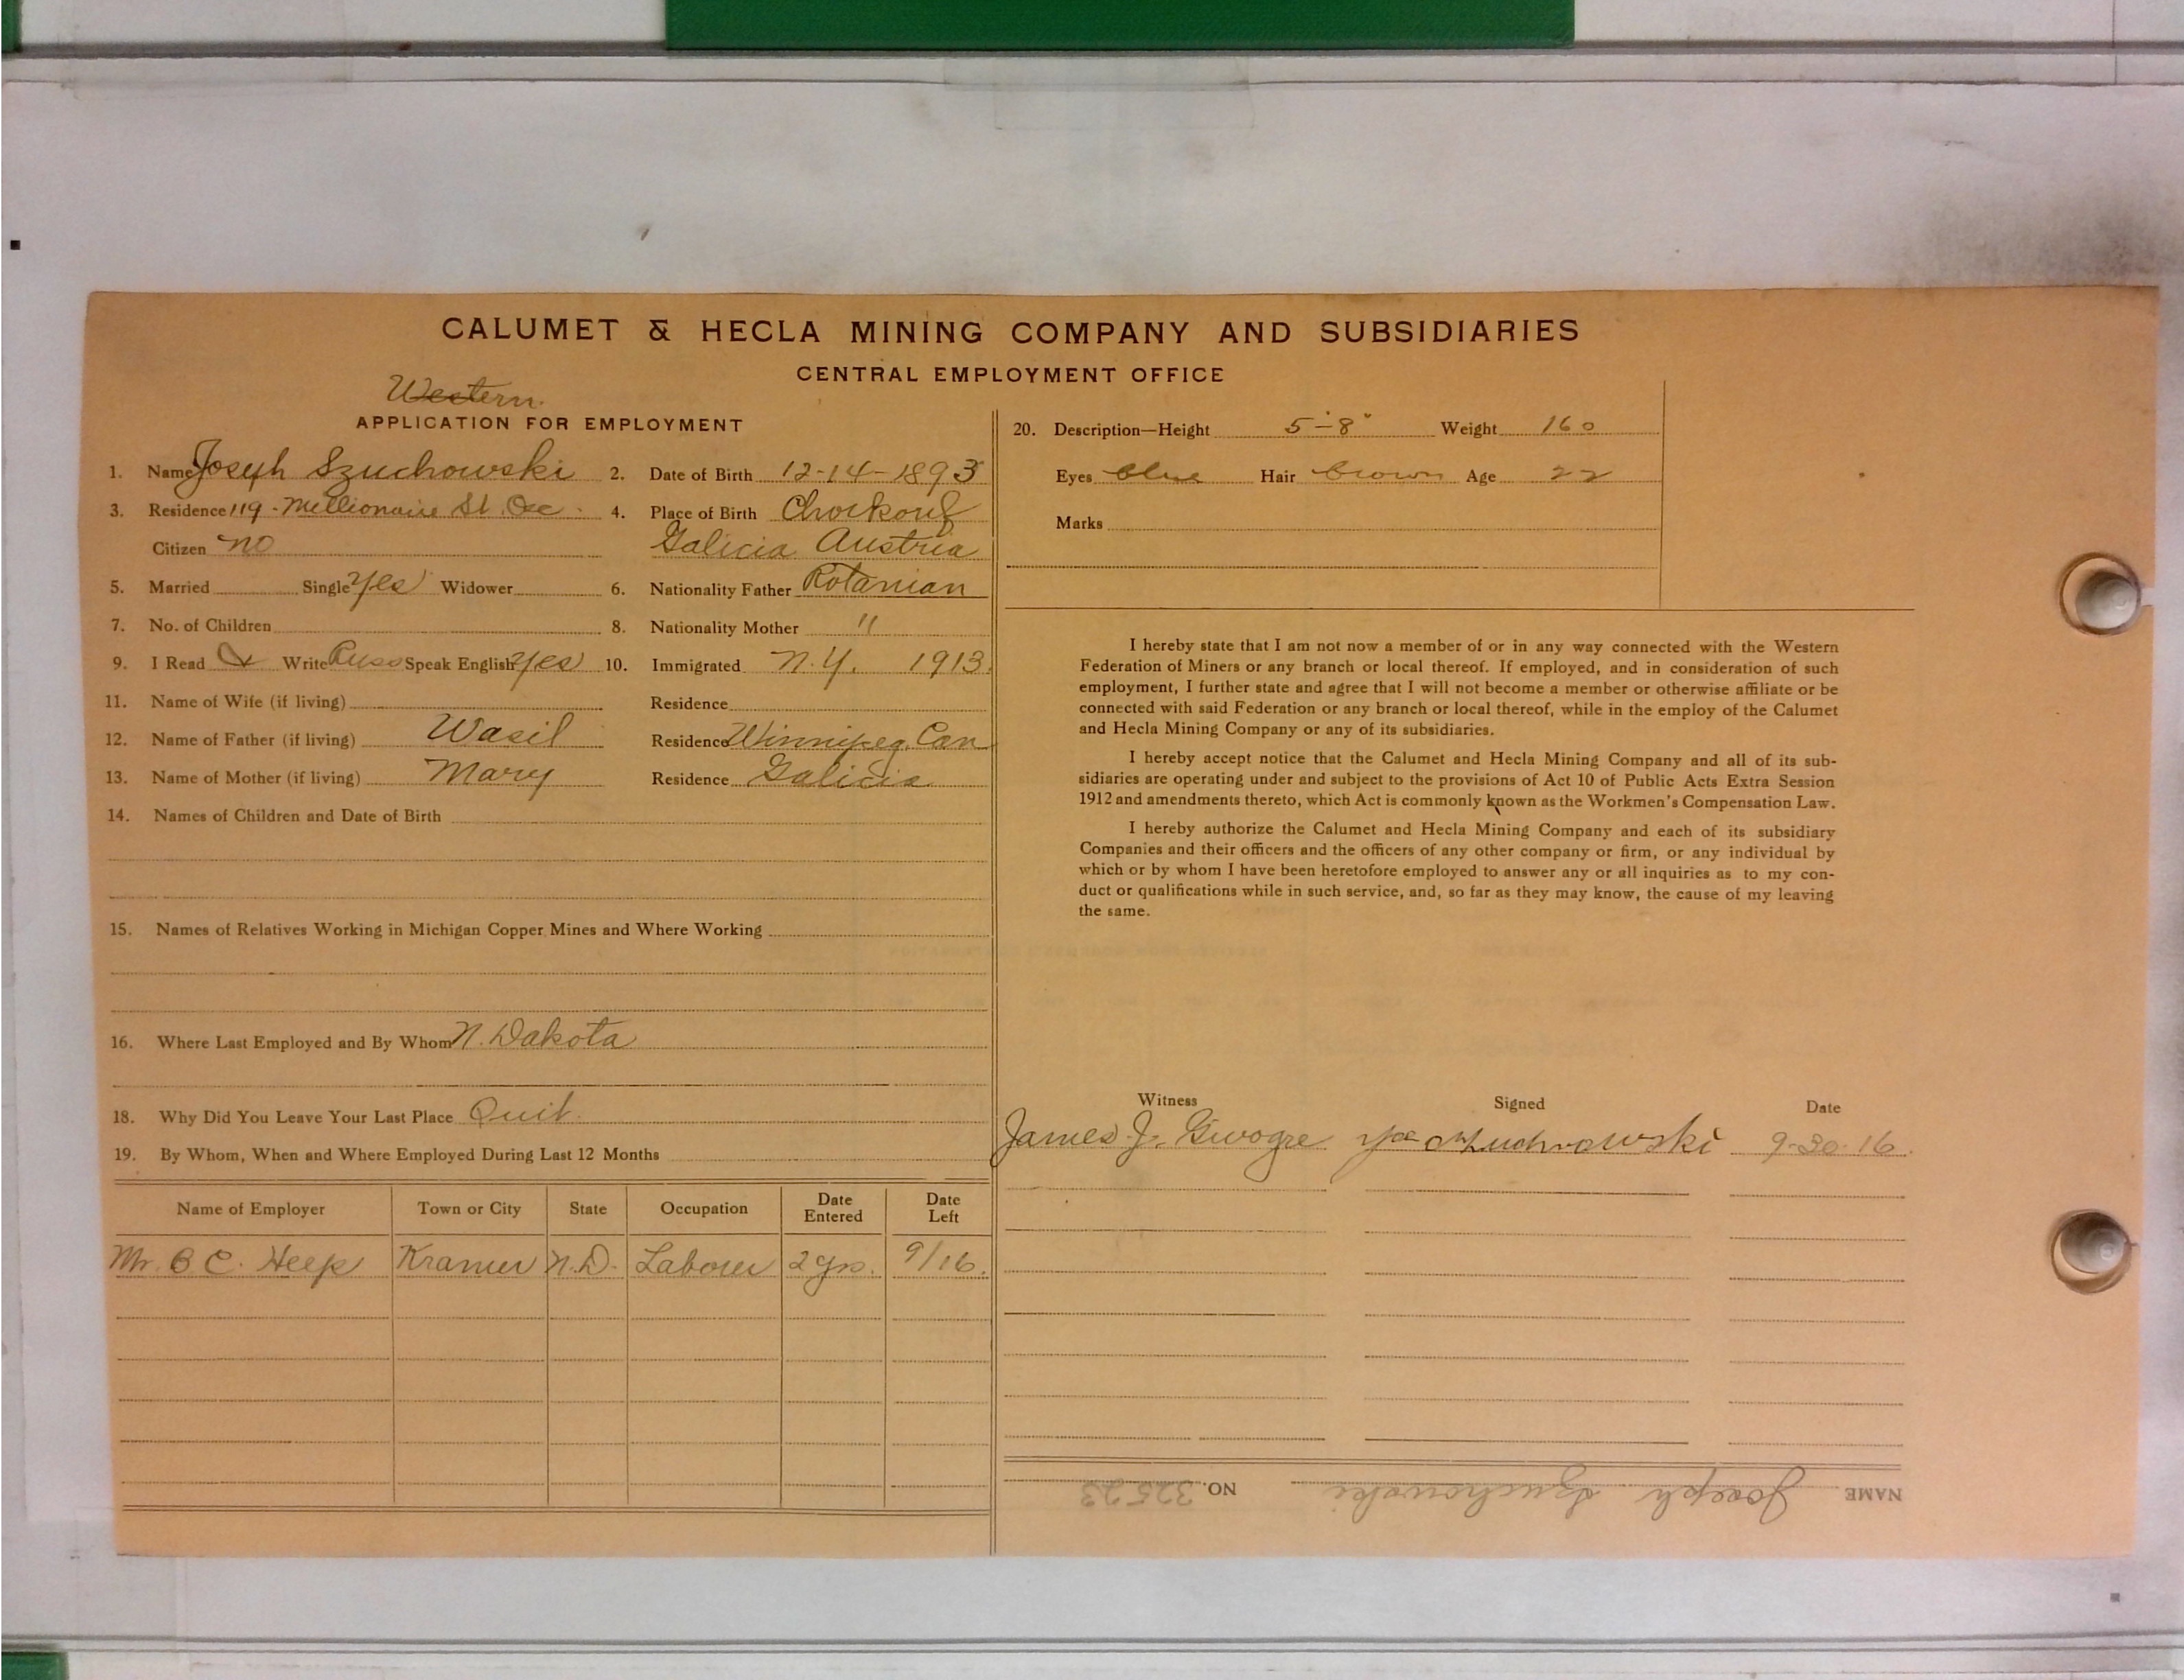 CALUMET & HECLA MINING COMPANY AND SUBSIDIARIES
CENTRAL EMPLOYMENT OFFICE
Western
APPLICATION FOR EMPLOYMENT
1. Name Joseph Szuchowski 2. Date of Birth 12-14-1893
3. Residence 119 - Millionaire St. Oce. 4. Place of Birth
Citizen no Galicia Austria
5. Married Single yes Widower 6. Nationality Father Rotanian
7. No. of Children 8. Nationality Mother "
9. I Read & Write Russ Speak English yes 10. Immigrated N.Y. 1913.
11. Name of Wife (if living) Residence
12. Name of Father (if living) Wasil Residence Winnipeg. Can
13. Name of Mother (if living) Mary Residence Galicia
14. Names of Children and Date of Birth
15. Names of Relatives Working in Michigan Copper Mines and Where Working
16. Where Last Employed and By Whom N. Dakota
18. Why Did You Leave Your Last Place Quit.
19. By Whom, When and Where Employed During Last 12 Months
Name of Employer Town or City State Occupation Date Entered Date Left
Mr. B C. Heep Kramer N.D. Laborer 2 yrs. 9/16.
20. Description—Height 5'-8" Weight 160
Eyes blue Hair brown Age 22
Marks
I hereby state that I am not now a member of or in any way connected with the Western
Federation of Miners or any branch or local thereof. If employed, and in consideration of such
employment, I further state and agree that I will not become a member or otherwise affiliate or be
connected with said Federation or any branch or local thereof, while in the employ of the Calumet
and Hecla Mining Company or any of its subsidiaries.
I hereby accept notice that the Calumet and Hecla Mining Company and all of its sub-
sidiaries are operating under and subject to the provisions of Act 10 of Public Acts Extra Session
1912 and amendments thereto, which Act is commonly known as the Workmen's Compensation Law.
I hereby authorize the Calumet and Hecla Mining Company and each of its subsidiary
Companies and their officers and the officers of any other company or firm, or any individual by
which or by whom I have been heretofore employed to answer any or all inquiries as to my con-
duct or qualifications while in such service, and, so far as they may know, the cause of my leaving
the same.
Witness Signed Date
James J. 9-30-16.
NAME Joseph Szuchowski NO. 32523